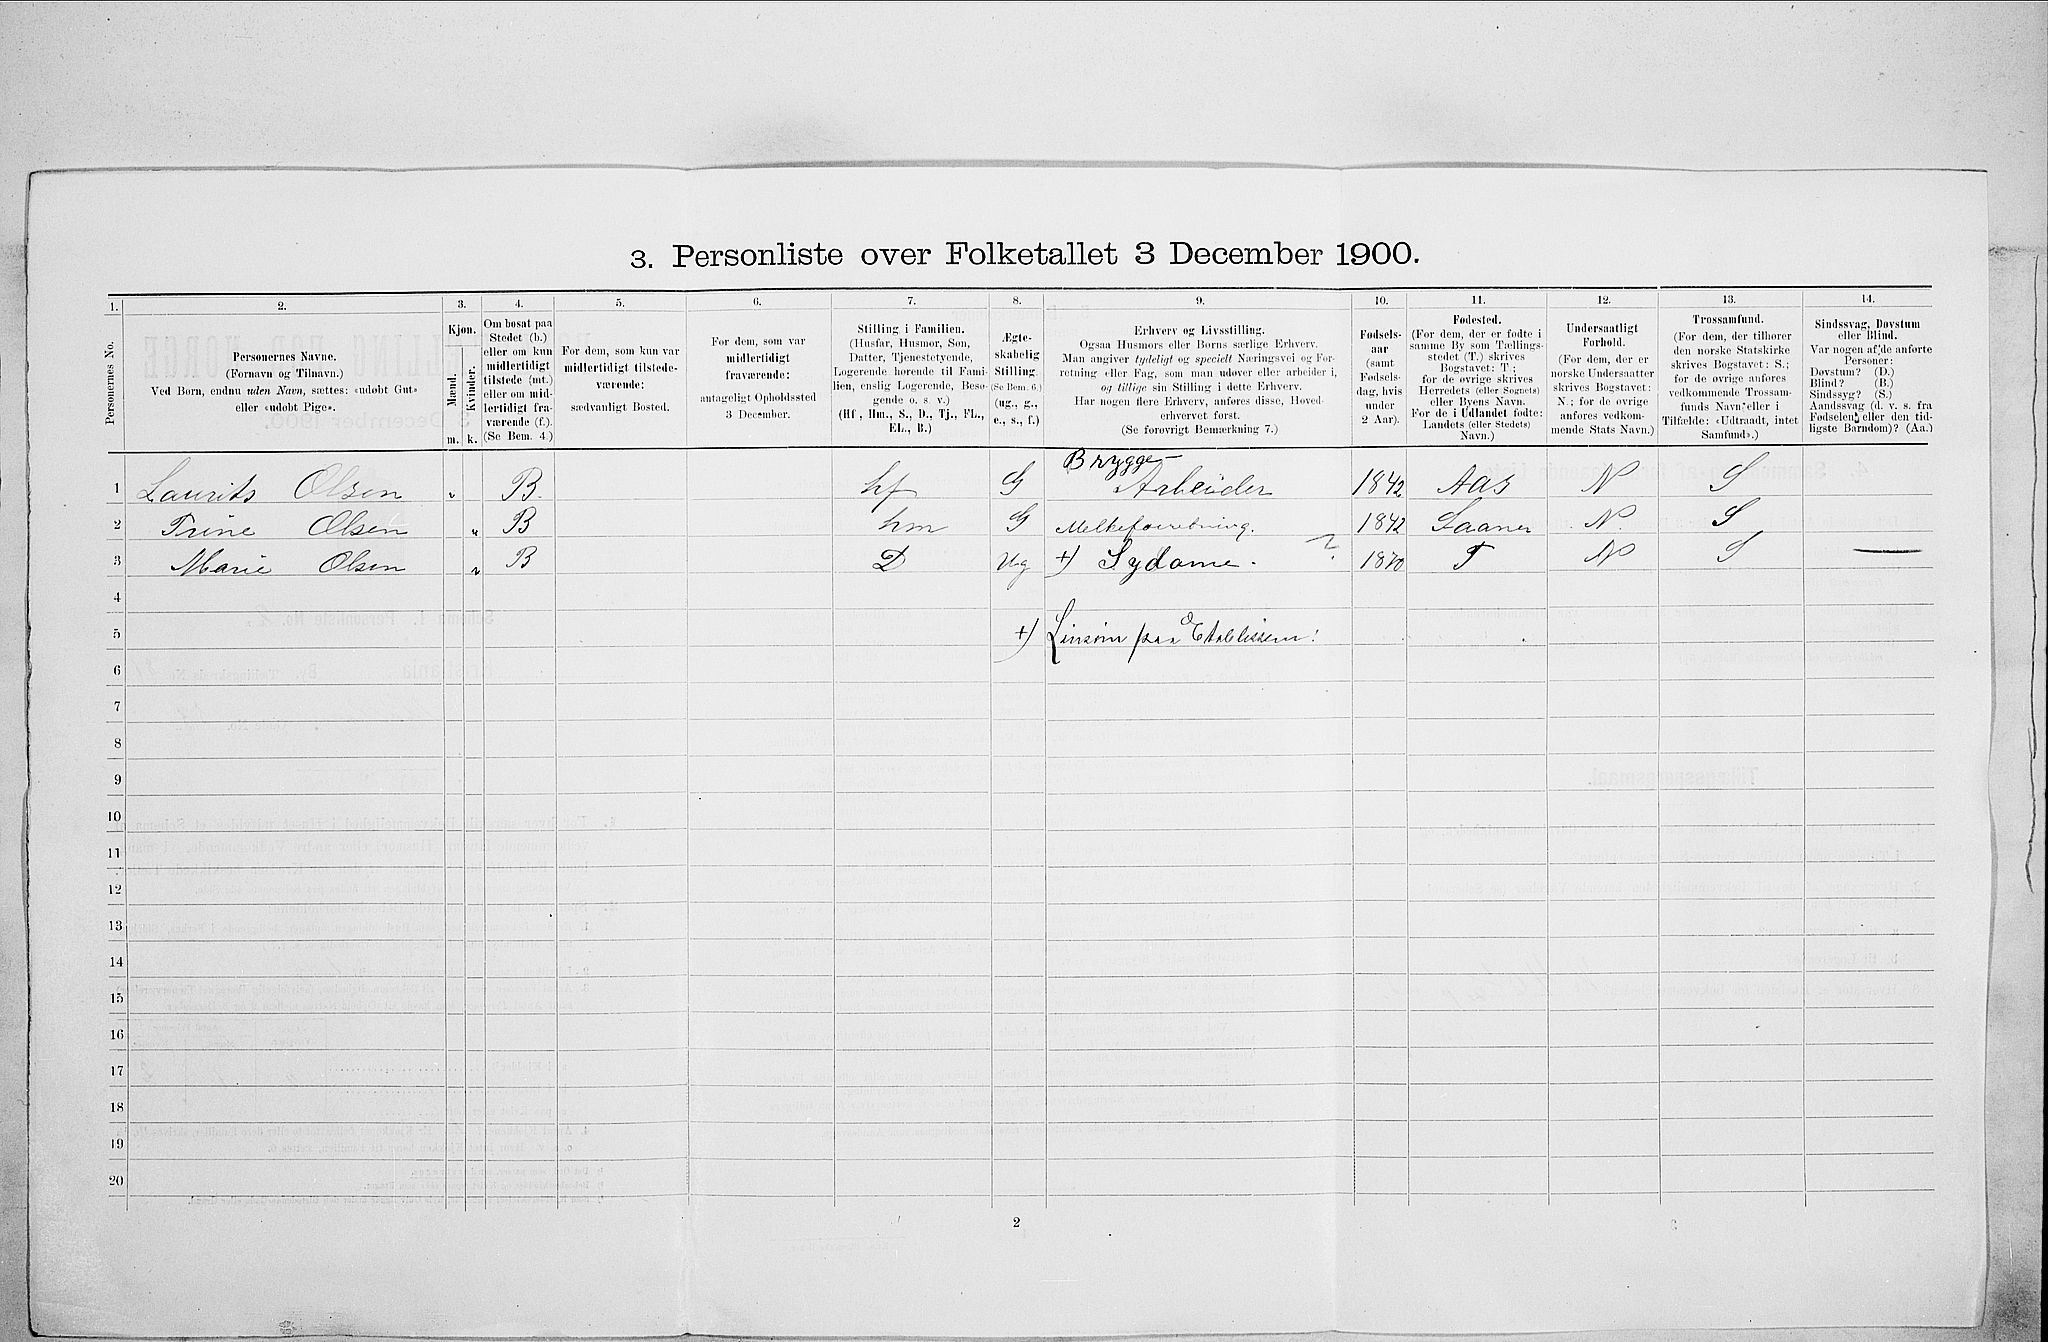 3. Personliste over Folketallet 3 December 1900.
1. 2. 3. 4. 5. 6. 7. 8. 9. 10. 11. 12. 13. 14.
Personernes No.
Personernes Navne.
(Fornavn og Tilnavn.)
Ved Børn, endnu uden Navn, sættes: «udøbt Gut»
eller «udøbt Pige».
Kjøn.
Mænd.
Kvinder.
m. k.
Om bosat paa
Stedet (b.)
eller om kun
midlertidigt
tilstede (mt.)
eller om mid-
lertidigt fra-
værende (f.).
(Se Bem. 4.)
For dem, som kun var
midlertidigt tilstede-
værende:
sædvanligt Bosted.
For dem, som var
midlertidigt
fraværende:
antageligt Opholdssted
3 December.
Stilling i Familien.
(Husfar, Husmor, Søn,
Datter, Tjenestetyende,
Logerende hørende til Fami-
lien, enslig Logerende, Besø-
gende o. s. v.)
(Hf., Hm., S., D., Tj., FL.,
EL., B.)
Ægte-
skabelig
Stilling.
(Se Bem. 6.)
(ug., g.,
e., s., f.)
Erhverv og Livsstilling.
Ogsaa Husmors eller Børns særlige Erhverv.
Man angiver tydeligt og specielt Næringsvei og For-
retning eller Fag, som man udøver eller arbeider i,
og tillige sin Stilling i dette Erhverv.
Har nogen flere Erhverv, anføres disse, Hoved-
erhvervet først.
(Se forøvrigt Bemærkning 7.)
Fødsels-
aar
(samt
Fødsels-
dag, hvis
under
2 Aar).
Fødested.
(For dem, der er fødte i
samme By som Tællings-
stedet (T.) skrives
Bogstavet: T;
for de øvrige skrives
Herredets (eller Sognets)
eller Byens Navn.
For de i Udlandet fødte:
Landets (eller Stedets)
Navn.)
Undersaatligt
Forhold.
(For dem, der er
norske Undersaatter
skrives Bogstavet:
N.; for de øvrige
anføres vedkom-
mende Stats Navn.)
Trossamfund.
(For dem, der tilhører
den norske Statskirke
skrives Bogstavet: S.;
for de øvrige anføres
vedkommende Trossam-
funds Navn, eller i
Tilfælde: «Udtraadt, intet
Samfund».)
Sindssvag, Døvstum
eller Blind.
Var nogen af de anførte
Personer:
Døvstum? (D.)
Blind? (B.)
Sindssyg? (S.)
Aandssvag (d. v. s. fra
Fødselen eller den tid-
ligste Barndom)? (Aa.)
Brygge-
1 Laurits Olsen B. hf G Arbeider 1842 Aas N S
2 Trine Olsen B hm G Melkeforretning. 1842 Saaner N. S
3 Marie Olsen B D Ug +) Sydame. ? 1870 T N S —
4
5 +) Linsøm paa Etablissem:
6
7
8
9
10
11
12
13
14
15
16
17
18
19
20
2